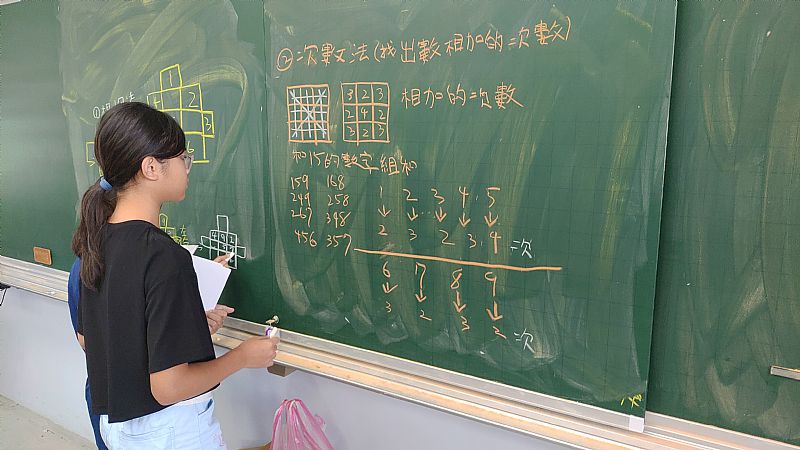 ②次數法(找出數相加的次數)
3 2 3
2 4 2
3 2 3
相加的次數
和15的數字組和
159 168
249 258
267 348
456 357
1 2 3 4 5
↓ ↓ ↓ ↓ ↓
2 3 2 3 4 次
6 7 8 9
↓ ↓ ↓ ↓
3 2 3 2 次
1
4 2
3